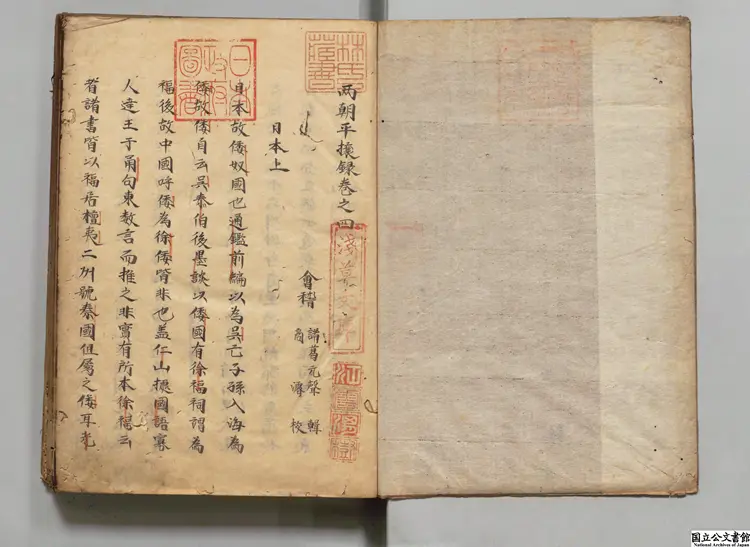 兩朝平攘録卷之四
會稽
諸葛元聲 輯
商濬 校
日本上
日本故倭奴國也通鑑前編以為吳亡子孫入海為
倭故倭自云吳泰伯後墨談以倭國有徐福祠謂為
福後故中國呼倭為徐倭皆非也盖仁山據國語寡
人達王于甬句東数言而推之非實有所本徐福云
者諸書皆以福居檀夷二州號秦國但属之倭耳光
林氏藏書
日本政府圖書
淺草文庫
江雲渭樹
国立公文書館
National Archives of Japan